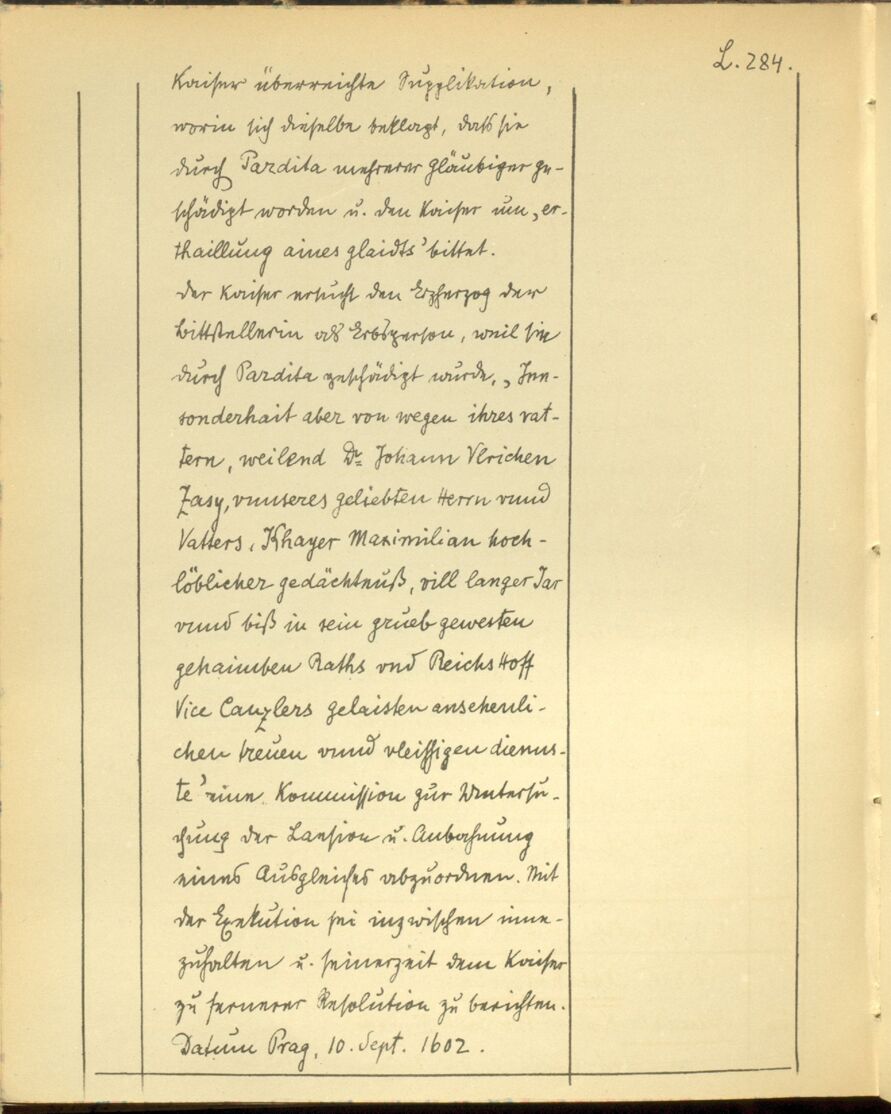 L. 284.
Kaiser überreichte Supplikation,
worin sich dieselbe beklagt, daß sie
durch Pardita mehrerer Gläubiger ge-
schädigt worden u. den Kaiser um „er-
thaillung aines glaidts' bittet.
Der Kaiser ersucht den Erzherzog der
Bittstellerin als Erbsperson, weil sie
durch Pardita geschädigt wurde, „Inn-
sonderhait aber von wegen ihres vat-
tern, weilend Dr Johann Vlrichen
Zasy, vnnseres geliebten Herrn vnnd
Vatters, Khayer Maximilian hoch-
löblicher gedächtnuß, vill langer Jar
vnnd biß in sein grueb gewesten
gehaimben Raths vnd Reichs Hoff
Vice Canzlers gelaisten ansehenli-
chen treuen vnnd vleissigen dienns-
te' eine Kommission zur Untersu-
chung der  u. Anbahnung
eines Ausgleiches abzuordnen. Mit
der Exekution sei inzwischen inne-
zuhalten u. seinerzeit dem Kaiser
zu fernerer Resolution zu berichten.
Datum Prag, 10. Sept. 1602.